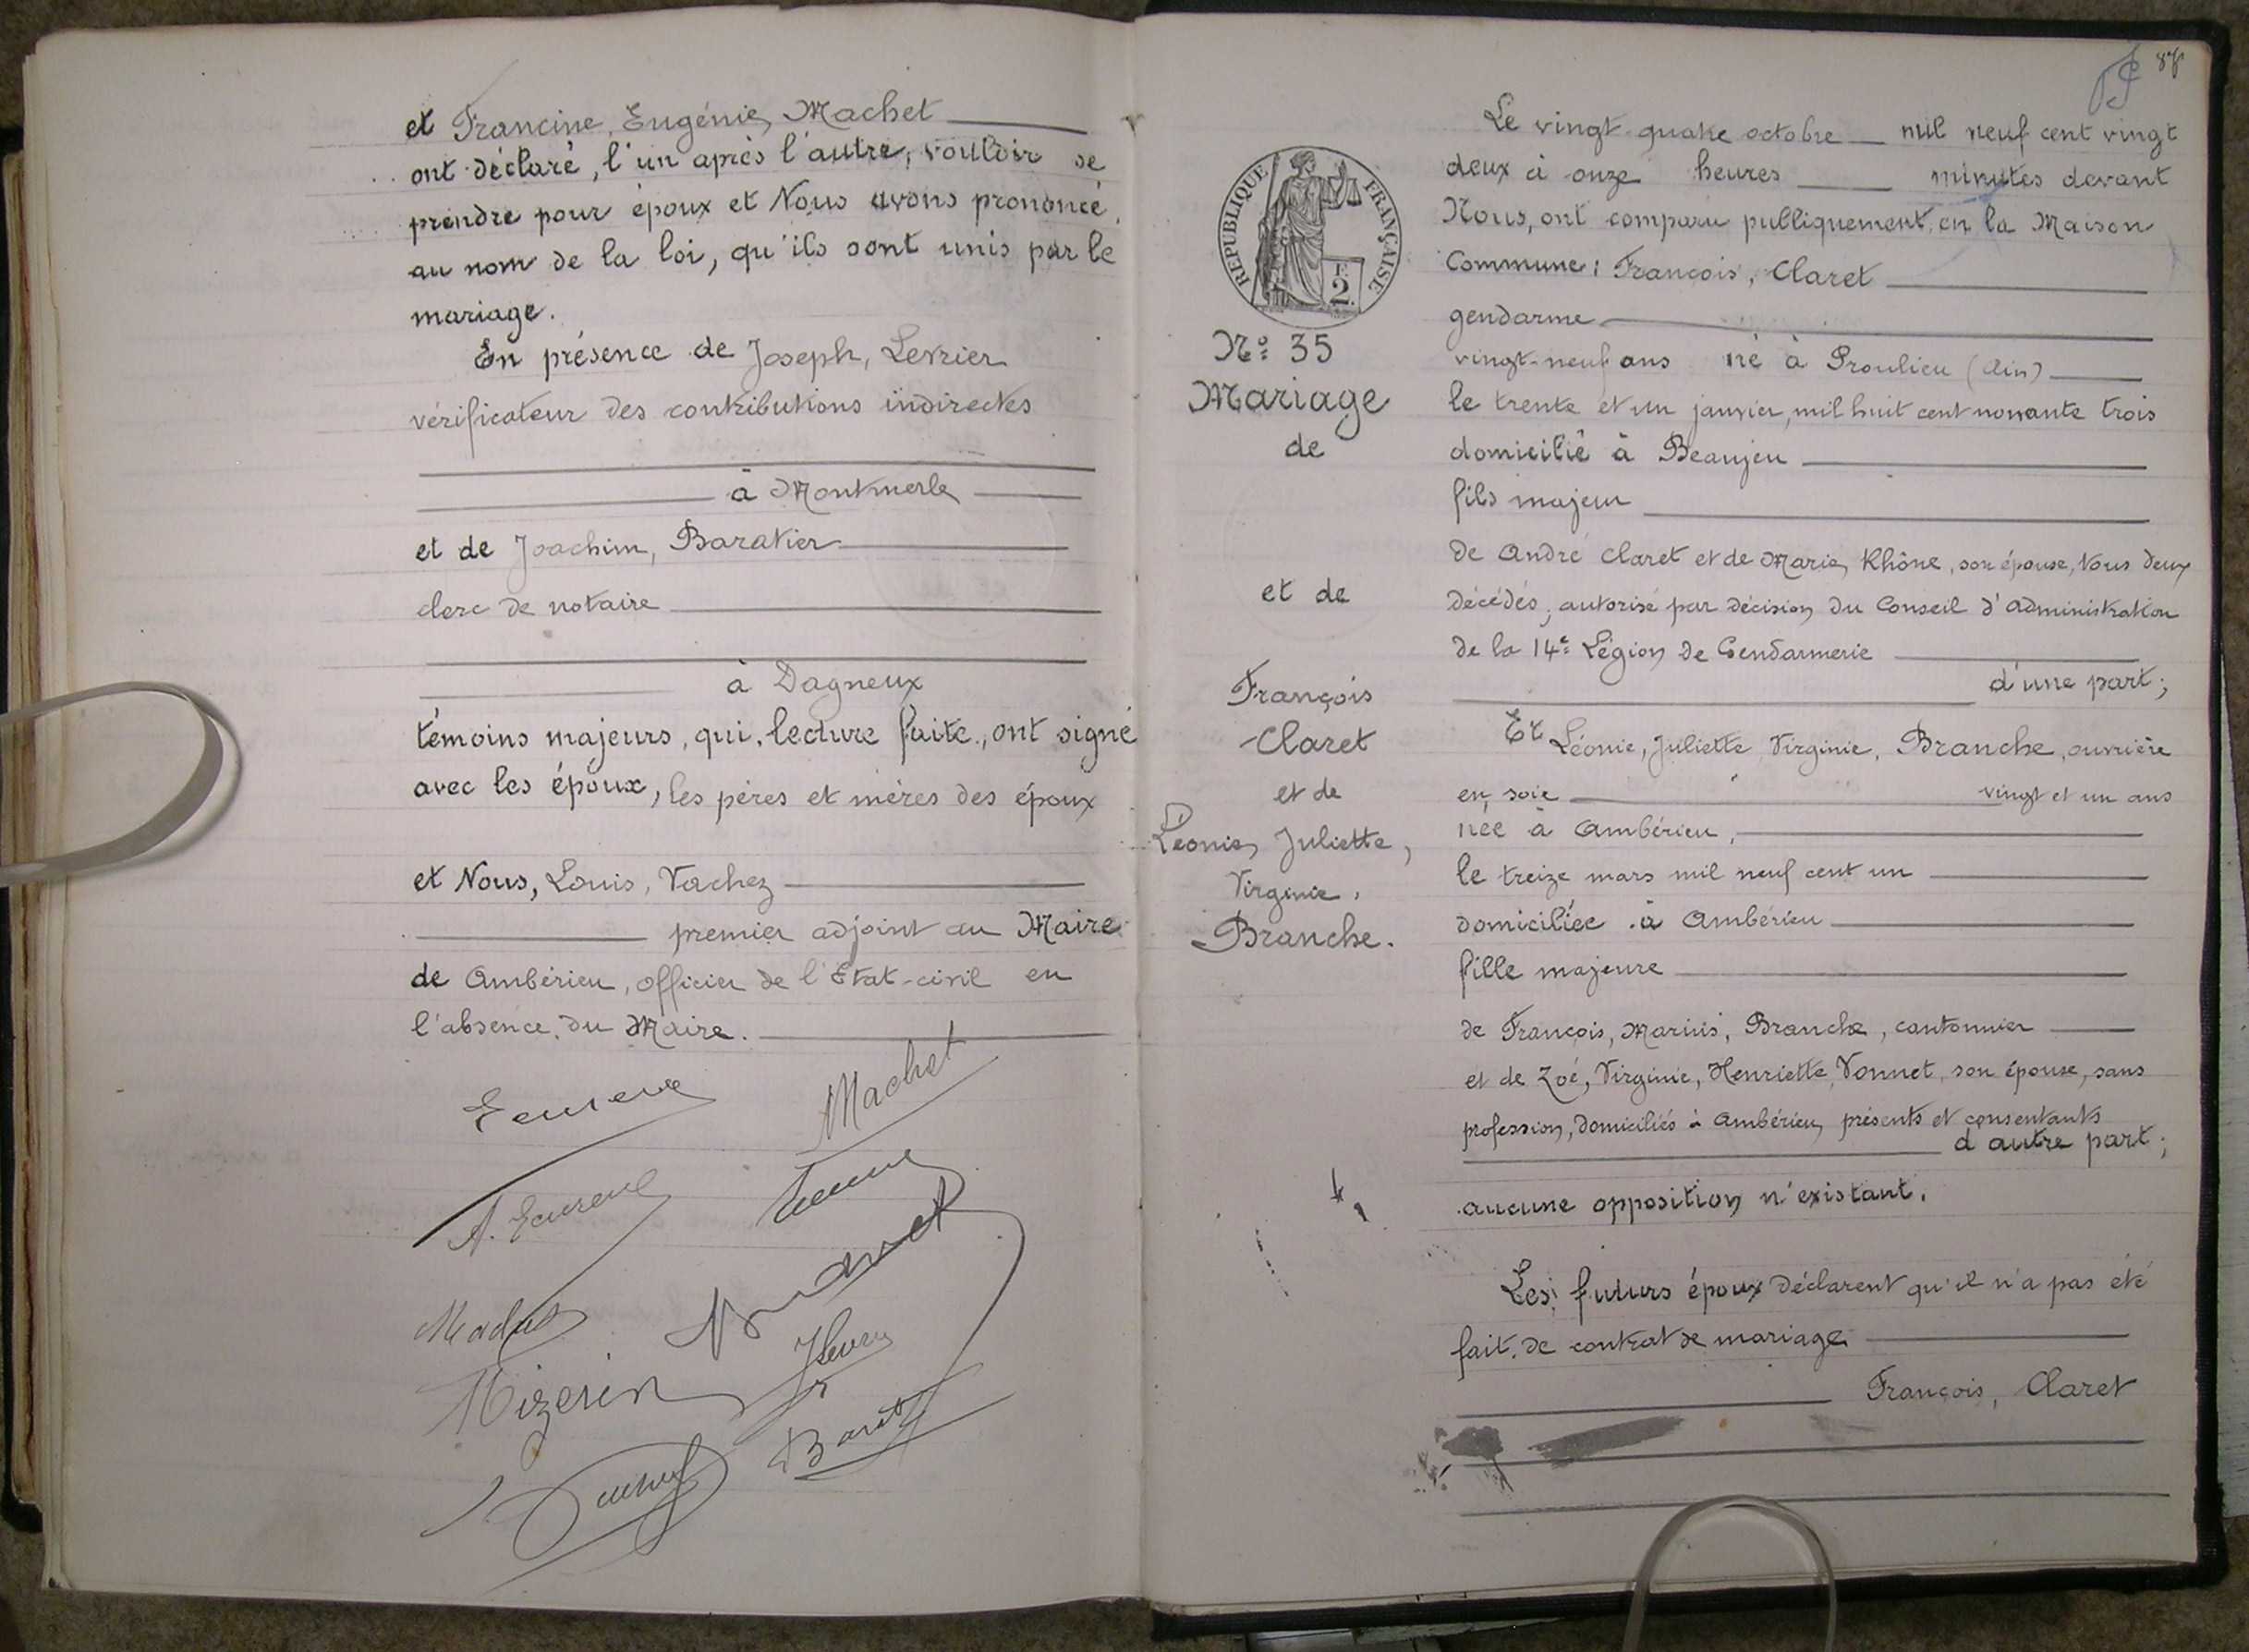 et Francine, Eugénie, Machet
ont déclaré, l'un après l'autre, vouloir se
prendre pour époux et Nous avons prononcé,
au nom de la loi, qu'ils sont unis par le
mariage.
En présence de Joseph, Levrier
vérificateur des contributions indirectes
à Montmerle
et de Joachim, Baratier
clerc de notaire
à Dagneux
témoins majeurs, qui, lecture faite, ont signé
avec les époux, les pères et mères des époux
et Nous, Louis, Vachez
premier adjoint au Maire
de Ambérieu, officier de l'Etat-civil en
l'absence du Maire.
Machet
Mizerin
REPUBLIQUE FRANÇAISE
F.
2.
No: 35
Mariage
de
et de
François
Claret
et de
Léonie, Juliette,
Virginie,
Branche.
Le vingt quatre octobre mil neuf cent vingt
deux à onze heures minutes devant
Nous, ont comparu publiquement en la Maison
Commune: François, Claret
gendarme
vingt-neuf ans né à Proulieu (Ain)
le trente et un janvier, mil huit cent nonante trois
domicilié à Beaujeu
fils majeur
de André Claret et de Marie, Rhône, son épouse, tous deux
décédés, autorisé par décision du Conseil d'administration
de la 14e Légion de Gendarmerie
d'une part;
Et Léonie, Juliette, Virginie, Branche, ouvrière
en soie vingt et un ans
née à Ambérieu,
le treize mars mil neuf cent un
domiciliée à Ambérieu
fille majeure
de François, Marius, Branche, cantonnier
et de Zoé, Virginie, Henriette, Vonnet, son épouse, sans
profession, domiciliés à Ambérieu, présents et consentants
d'autre part;
aucune opposition n'existant.
Les futurs époux déclarent qu'il n'a pas été
fait de contrat de mariage
François, Claret